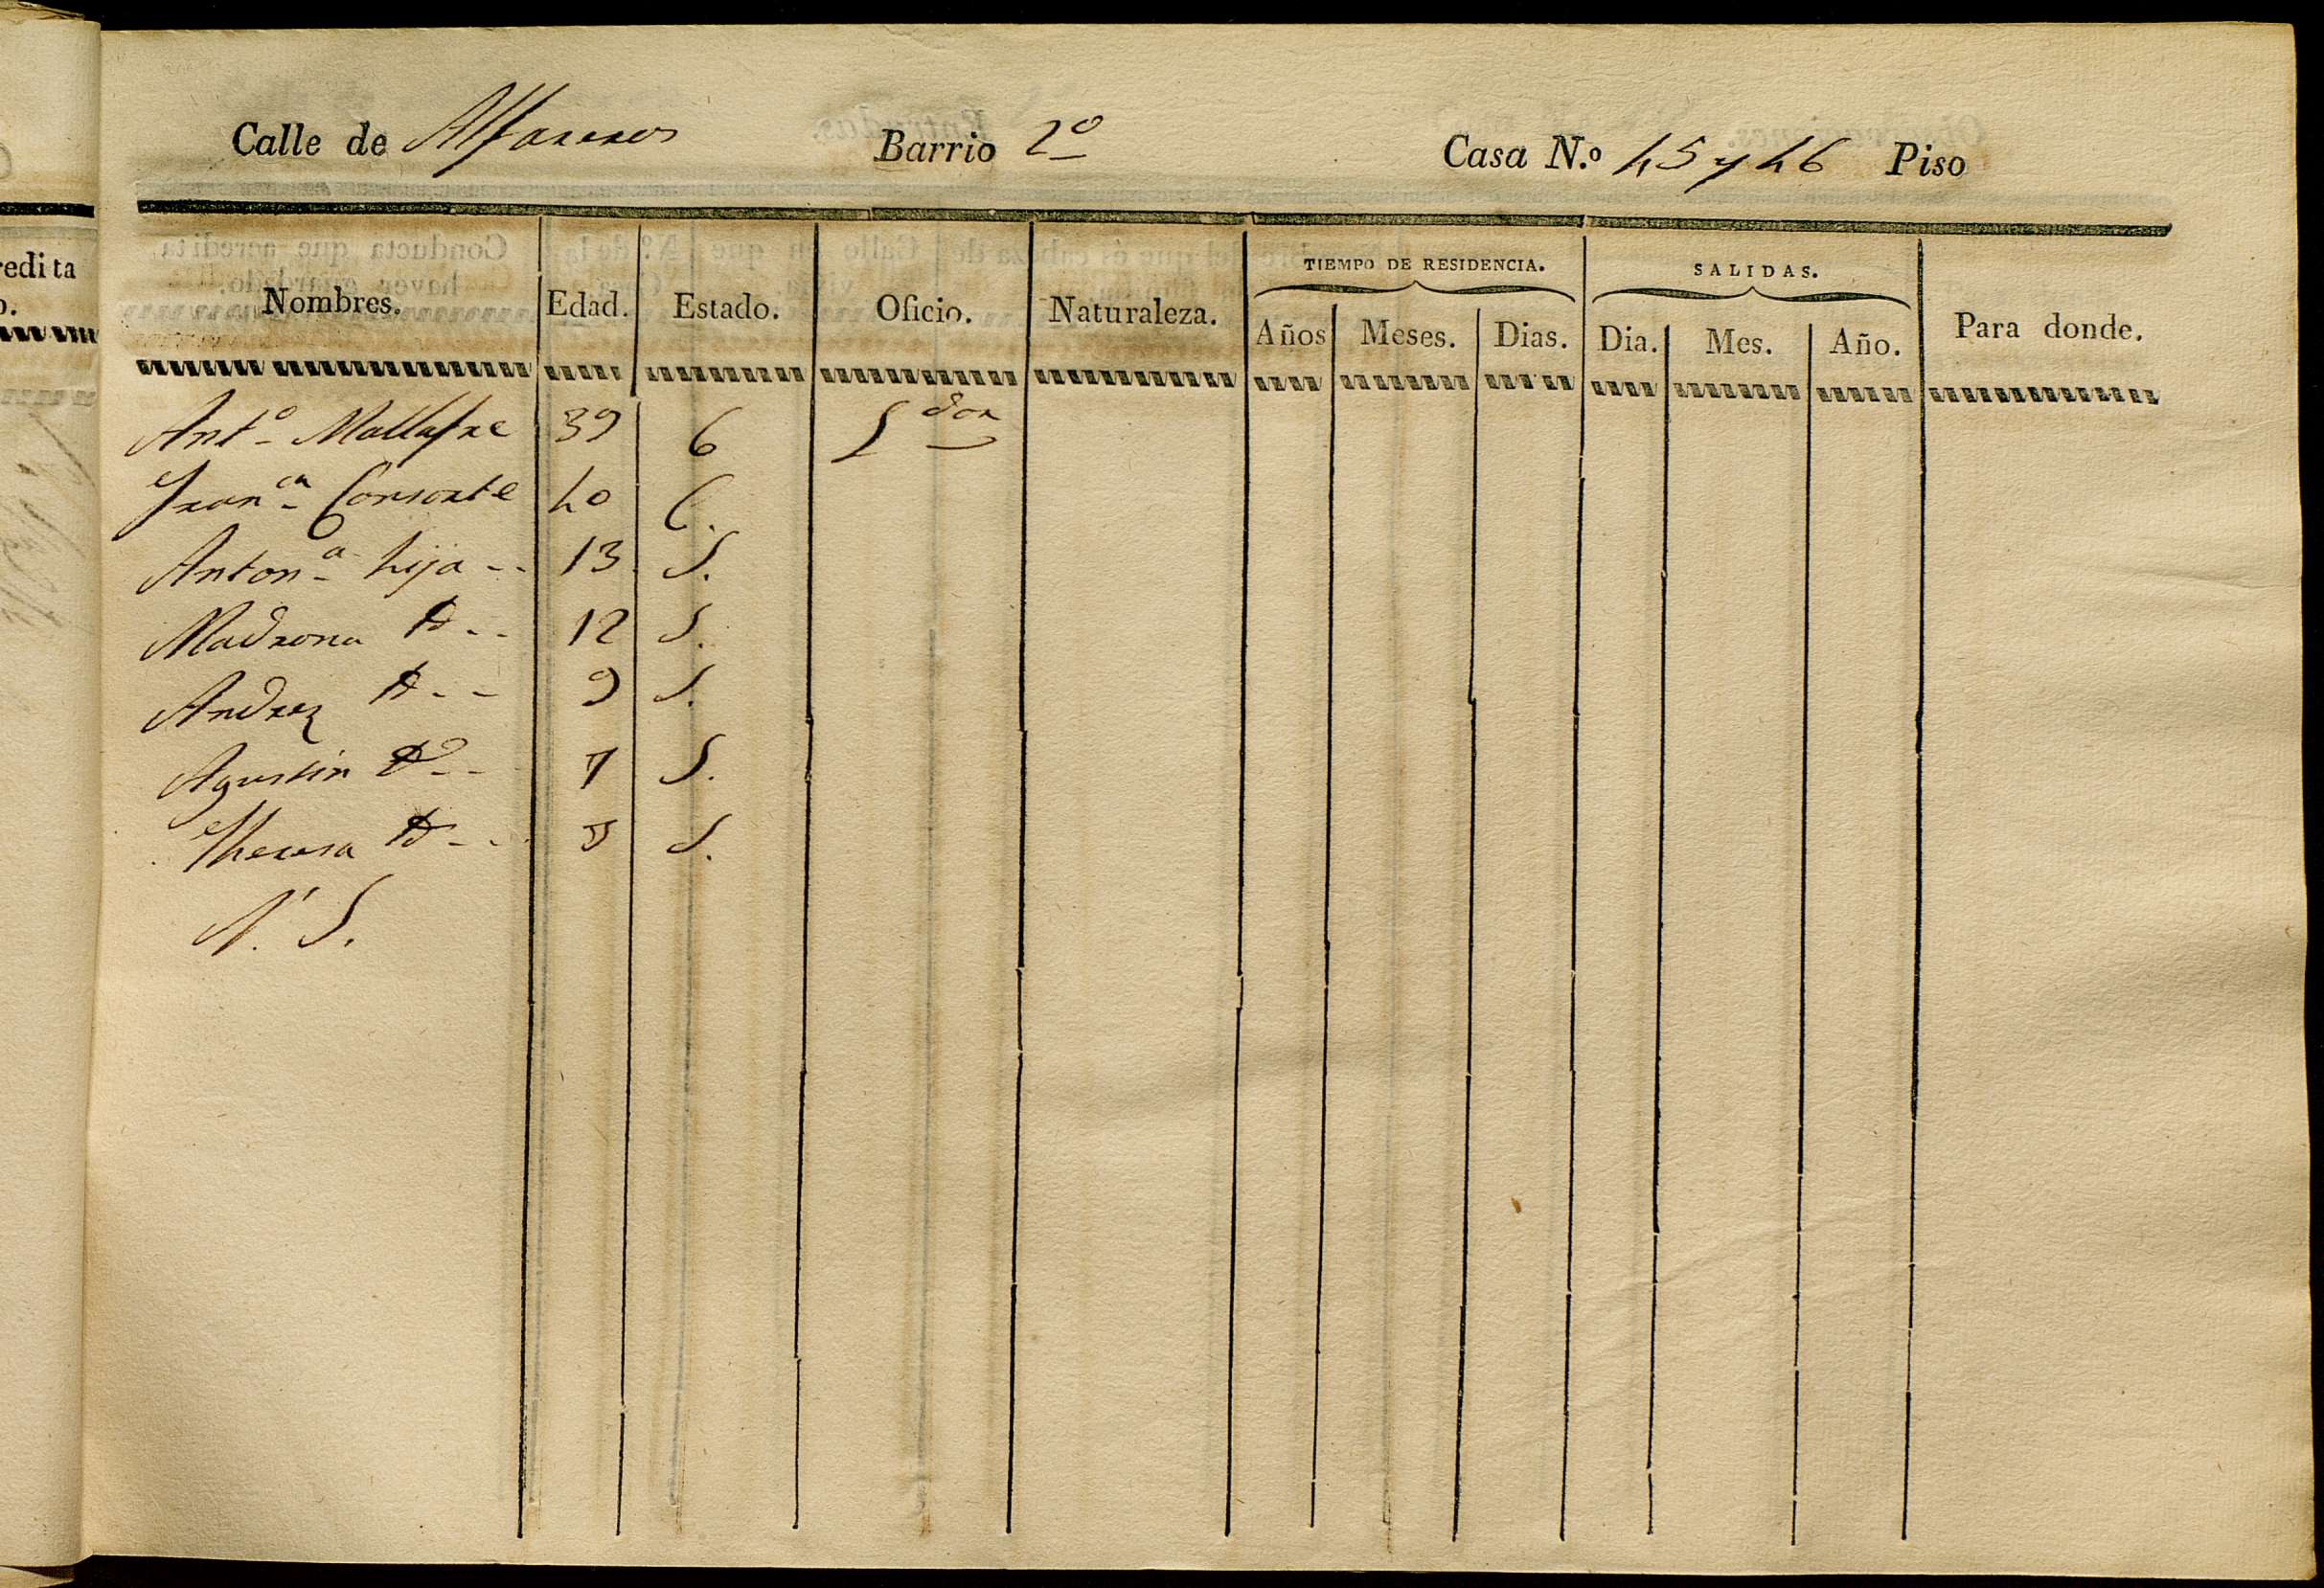 Calle de Alfareros Barrio 2º Casa N.º 45 y 46 Piso
redita
o.
TIEMPO DE RESIDENCIA. SALIDAS.
Nombres. Edad. Estado. Oficio. Naturaleza. Años Meses. Dias. Dia. Mes. Año. Para donde.
Antº Mallafre 39 C Ldor
Franca Consorte 40 C.
Antona hija -- 13 S.
Madrona Id -- 12 S.
Andrez Id -- 9 S.
Agustin Id -- 7 S.
Theresa Id -- 5 S.
N. S.